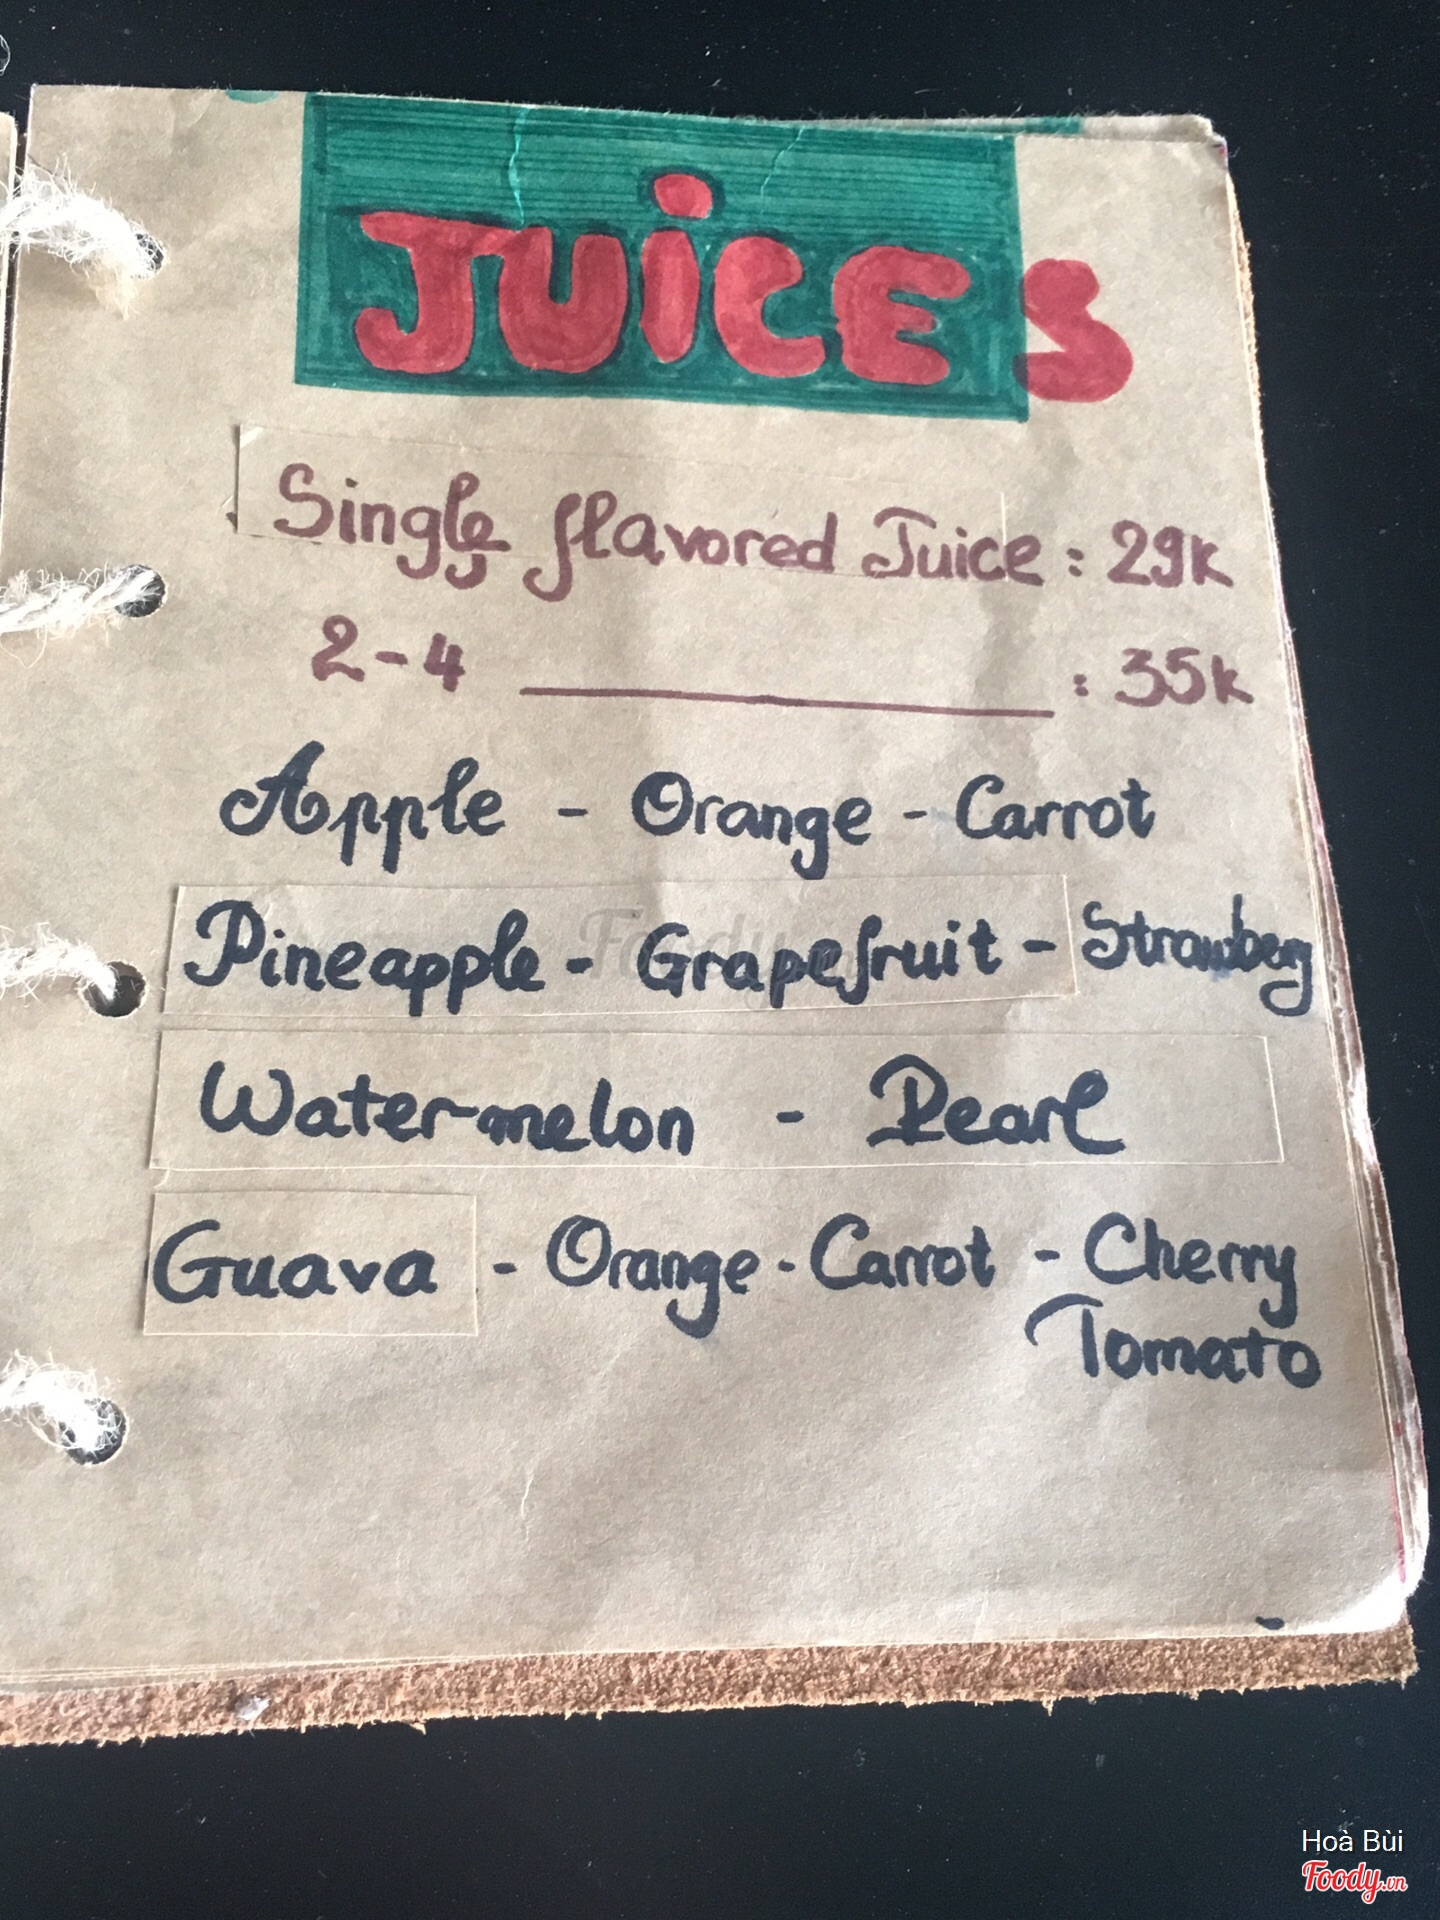 JUiCES
Single flavored Juice : 29k
2-4 ___ : 35k
Apple - Orange - Carrot
Pineapple - Grapefruit - Strawbery
Watermelon - Pearl
Guava - Orange - Carrot - Cherry
Tomato
Foody
Hoà Bùi
Foody.vn